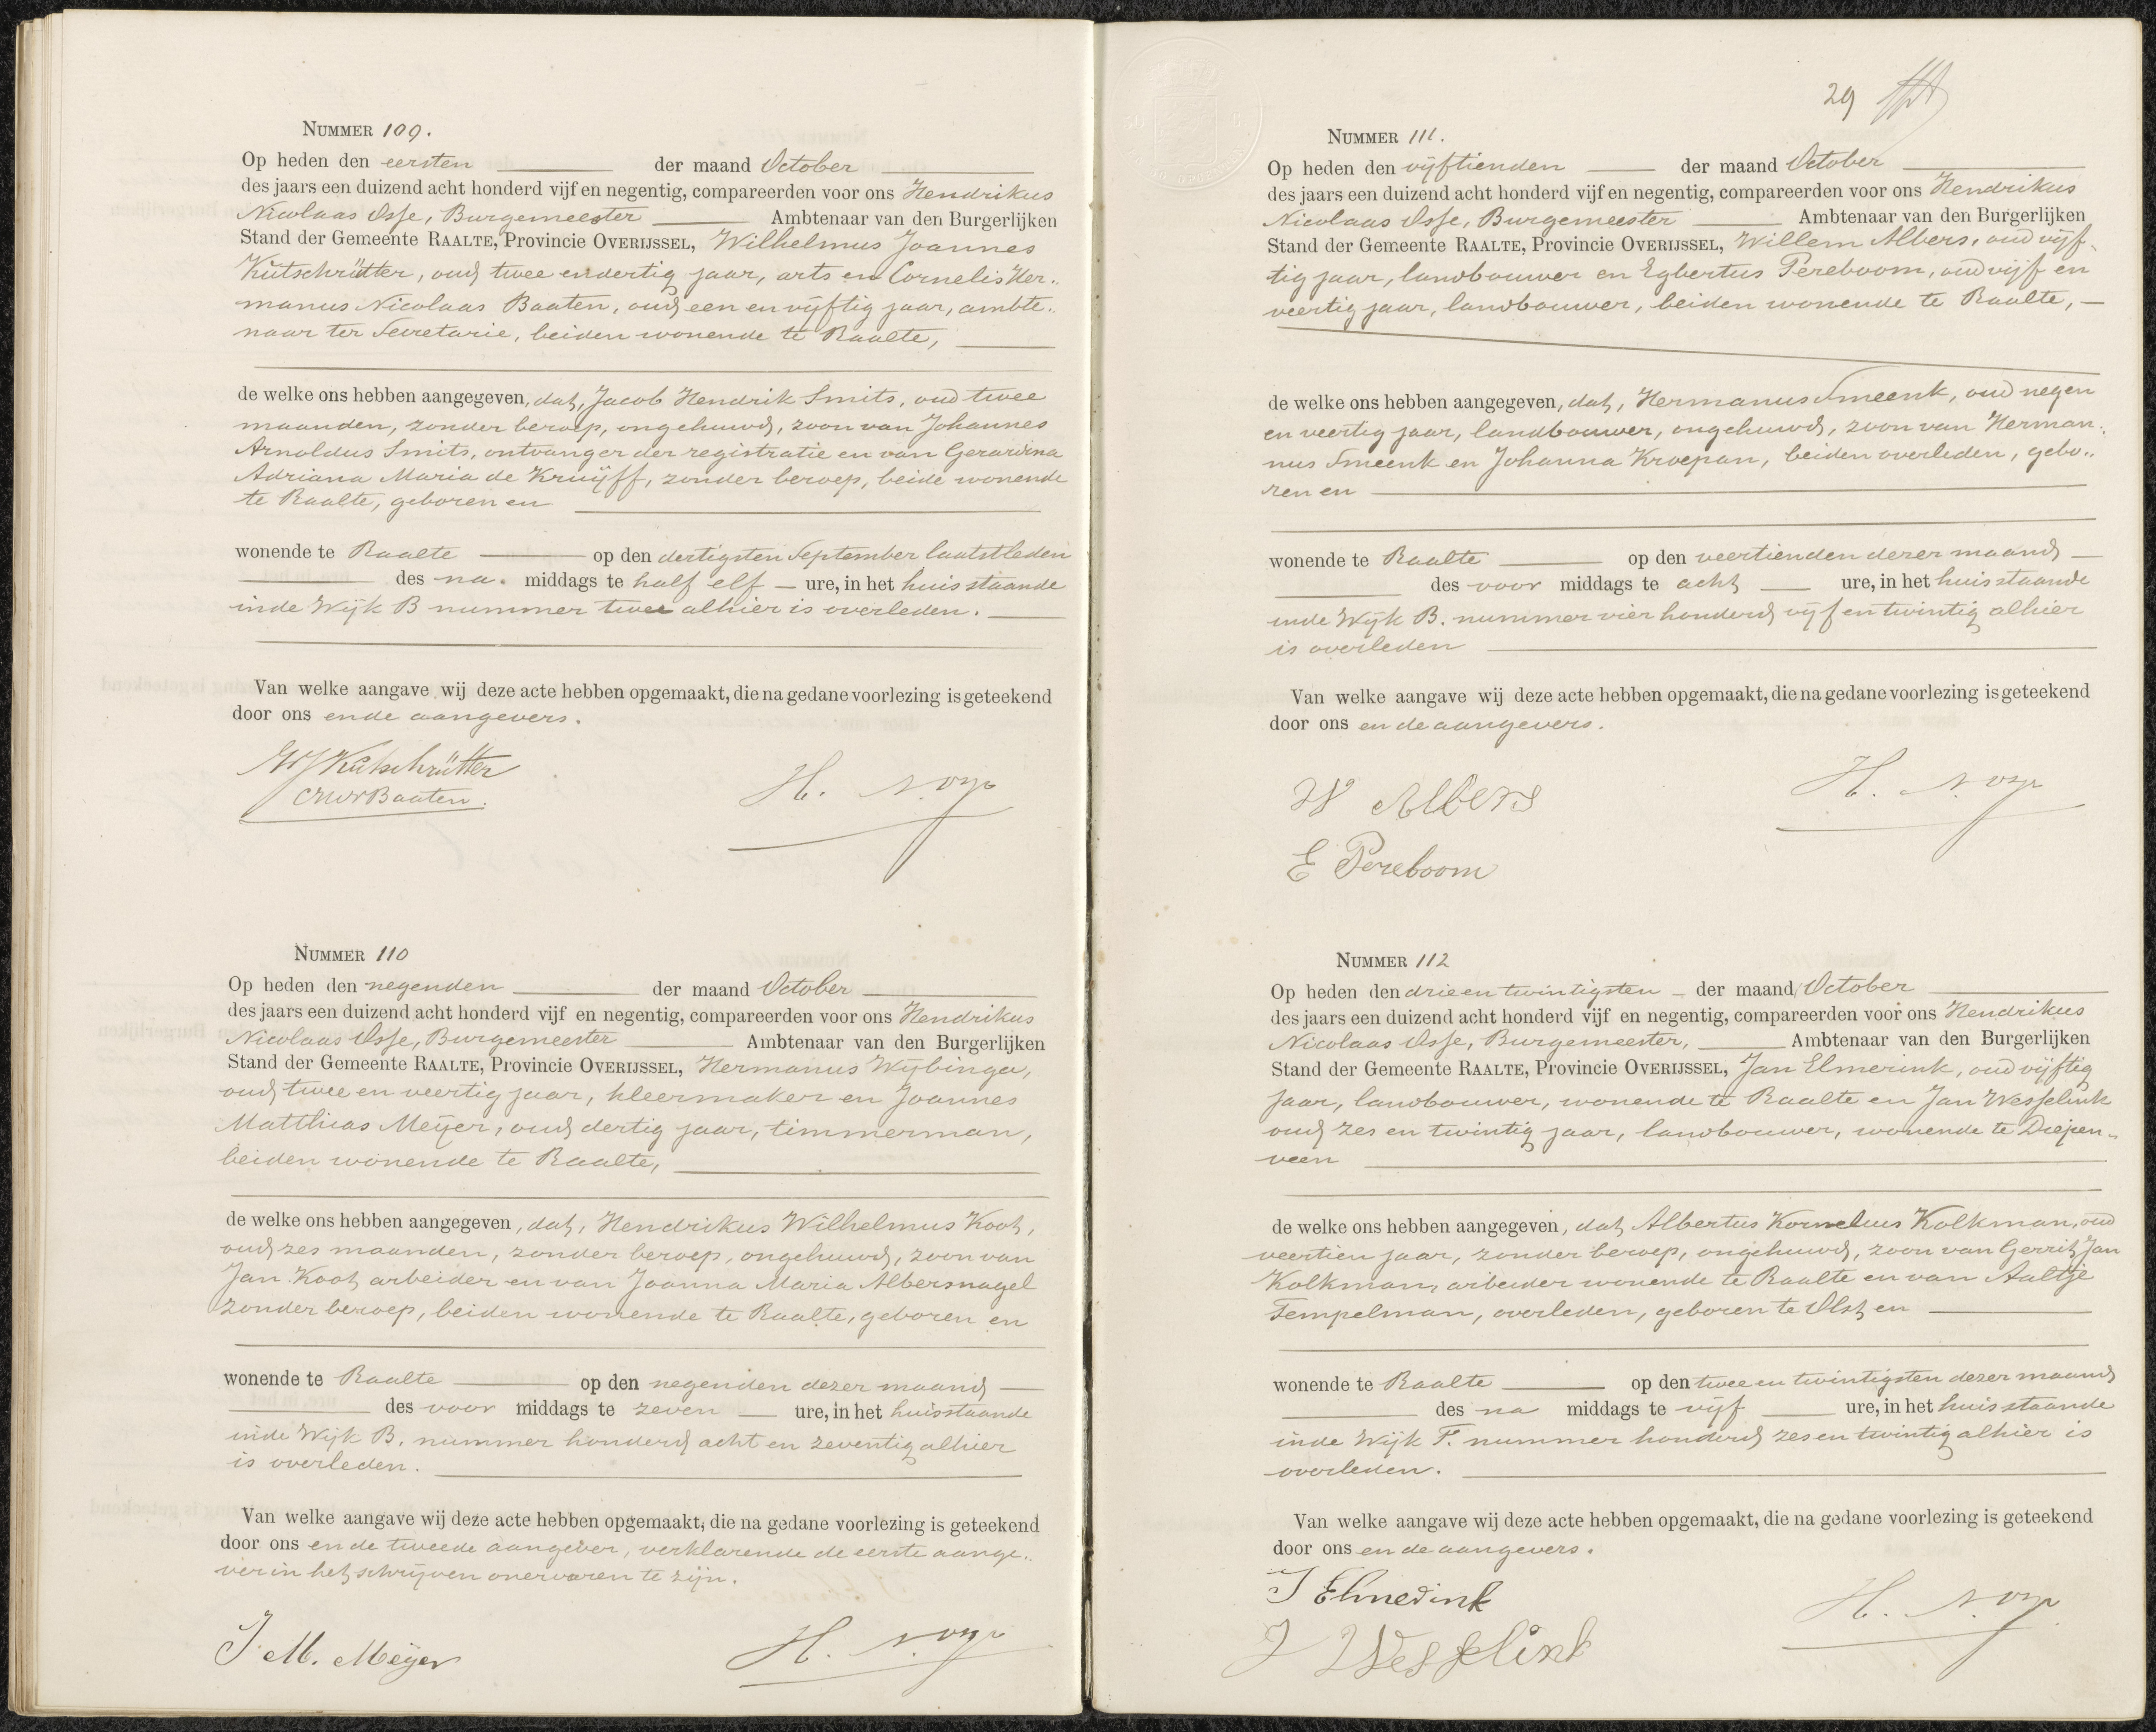 NUMMER 109.
Op heden den eersten der maand October
des jaars een duizend acht honderd vijf en negentig, compareerden voor ons Hendrikus
Nicolaas Osse, Burgemeester Ambtenaar van den Burgerlijken
Stand der Gemeente RAALTE, Provincie OVERIJSSEL, Wilhelmus Joannes
Kütschrütter, oud twee en dertig jaar, arts en Cornelis Her-
manus Nicolaas Baaten, oud een en vijftig jaar, ambte-
naar ter Secretarie, beiden wonende te Raalte,
de welke ons hebben aangegeven, dat, Jacob Hendrik Smits, oud twee
maanden, zonder beroep, ongehuwd, zoon van Johannes
Arnoldus Smits, ontvanger der registratie en van Gerardina
Adriana Maria de Kruijff, zonder beroep, beide wonende
te Raalte, geboren en
wonende te Raalte op den dertigsten September laatstleden
des na. middags te half elf ure, in het huis staande
in de Wijk B nummer twee alhier is overleden.
Van welke aangave wij deze acte hebben opgemaakt, die na gedane voorlezing is geteekend
door ons en de aangevers.
WJ Kütschrütter
CHN Baaten.
H. N. Osse
NUMMER 110
Op heden den negenden der maand October
des jaars een duizend acht honderd vijf en negentig, compareerden voor ons Hendrikus
Nicolaas Osse, Burgemeester Ambtenaar van den Burgerlijken
Stand der Gemeente RAALTE, Provincie OVERIJSSEL, Hermanus Wijbinga,
oud twee en veertig jaar, kleermaker en Joannes
Matthias Meijer, oud dertig jaar, timmerman,
beiden wonende te Raalte,
de welke ons hebben aangegeven, dat, Hendrikus Wilhelmus Koot,
oud zes maanden, zonder beroep, ongehuwd, zoon van
Jan Koot arbeider en van Joanna Maria Albersnagel
zonder beroep, beiden wonende te Raalte, geboren en
wonende te Raalte op den negenden dezer maand
des voor middags te zeven ure, in het huis staande
in de Wijk B. nummer honderd acht en zeventig alhier
is overleden.
Van welke aangave wij deze acte hebben opgemaakt, die na gedane voorlezing is geteekend
door ons en de tweede aangever, verklarende de eerste aange-
ver in het schrijven onervaren te zijn.
J. M. Meijer
H. N. Osse
29
NUMMER 111.
Op heden den vijftienden der maand October
des jaars een duizend acht honderd vijf en negentig, compareerden voor ons Hendrikus
Nicolaas Osse, Burgemeester Ambtenaar van den Burgerlijken
Stand der Gemeente RAALTE, Provincie OVERIJSSEL, Willem Albers, oud vijf-
tig jaar, landbouwer en Egbertus Pereboom, oud vijf en
veertig jaar, landbouwer, beiden wonende te Raalte,
de welke ons hebben aangegeven, dat, Hermanus Smeenk, oud negen
en veertig jaar, landbouwer, ongehuwd, zoon van Herman-
nus Smeenk en Johanna Kroepan, beiden overleden, gebo-
ren en
wonende te Raalte op den veertienden dezer maand
des voor middags te acht ure, in het huis staande
in de Wijk B. nummer vier honderd vijf en twintig alhier
is overleden
Van welke aangave wij deze acte hebben opgemaakt, die na gedane voorlezing is geteekend
door ons en de aangevers.
W Albers
E Pereboom
H. N. Osse
NUMMER 112
Op heden den drie en twintigsten der maand October
des jaars een duizend acht honderd vijf en negentig, compareerden voor ons Hendrikus
Nicolaas Osse, Burgemeester, Ambtenaar van den Burgerlijken
Stand der Gemeente RAALTE, Provincie OVERIJSSEL, Jan Elmerink, oud vijftig
jaar, landbouwer, wonende te Raalte en Jan Wesselink
oud zes en twintig jaar, landbouwer, wonende te Diepen-
veen
de welke ons hebben aangegeven, dat Albertus Kornelius Kolkman, oud
veertien jaar, zonder beroep, ongehuwd, zoon van Gerrit Jan
Kolkman, arbeider wonende te Raalte en van Aaltje
Tempelman, overleden, geboren te Olst en
wonende te Raalte op den twee en twintigsten dezer maand
des na middags te vijf ure, in het huis staande
in de Wijk F. nummer honderd zes en twintig alhier is
overleden.
Van welke aangave wij deze acte hebben opgemaakt, die na gedane voorlezing is geteekend
door ons en de aangevers.
J Elmerink
J Wesselink
H. N. Osse